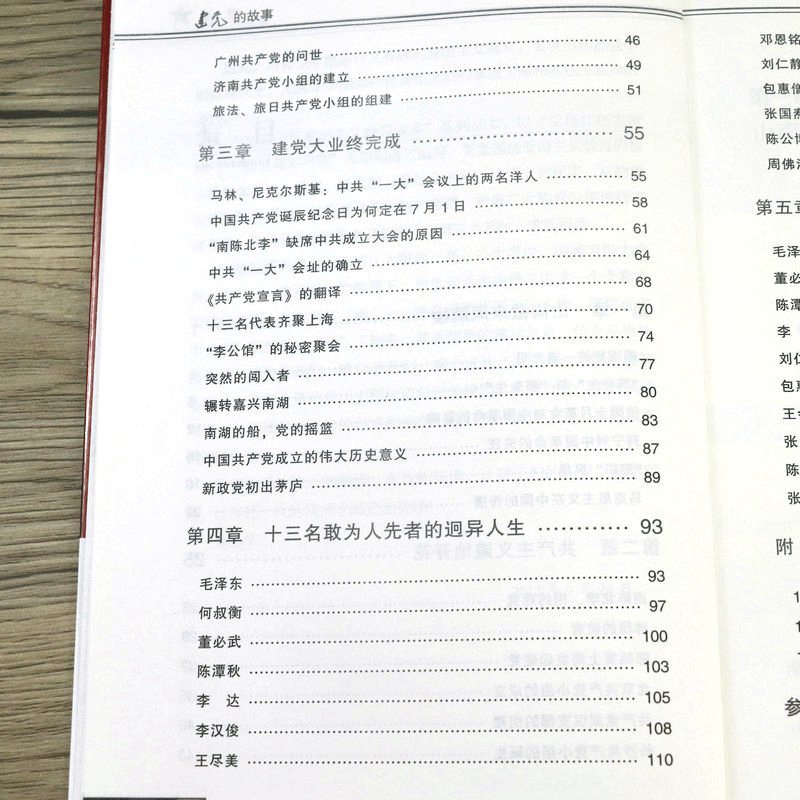 建党的故事
广州共产党的问世 46
济南共产党小组的建立 49
旅法、旅日共产党小组的组建 51
第三章 建党大业终完成 55
马林、尼克尔斯基：中共“一大”会议上的两名洋人 55
中国共产党诞辰纪念日为何定在7月1日 58
“南陈北李”缺席中共成立大会的原因 61
中共“一大”会址的确立 64
《共产党宣言》的翻译 68
十三名代表齐聚上海 70
“李公馆”的秘密聚会 74
突然的闯入者 77
辗转嘉兴南湖 80
南湖的船，党的摇篮 83
中国共产党成立的伟大历史意义 87
新政党初出茅庐 89
第四章 十三名敢为人先者的迥异人生 93
毛泽东 93
何叔衡 97
董必武 100
陈潭秋 103
李 达 105
李汉俊 108
王尽美 110
邓恩铭
刘仁静
包惠僧
张国焘
陈公博
周佛海
第五章
毛泽
董必
陈潭
李
刘仁
包惠
王
张
陈
张
附
参